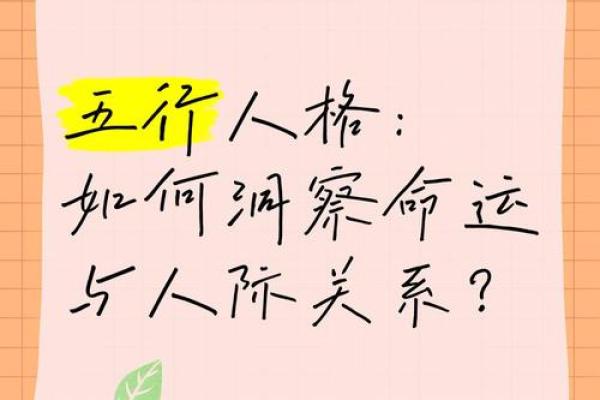 五行人格：
如何洞察命运
与人际关系？